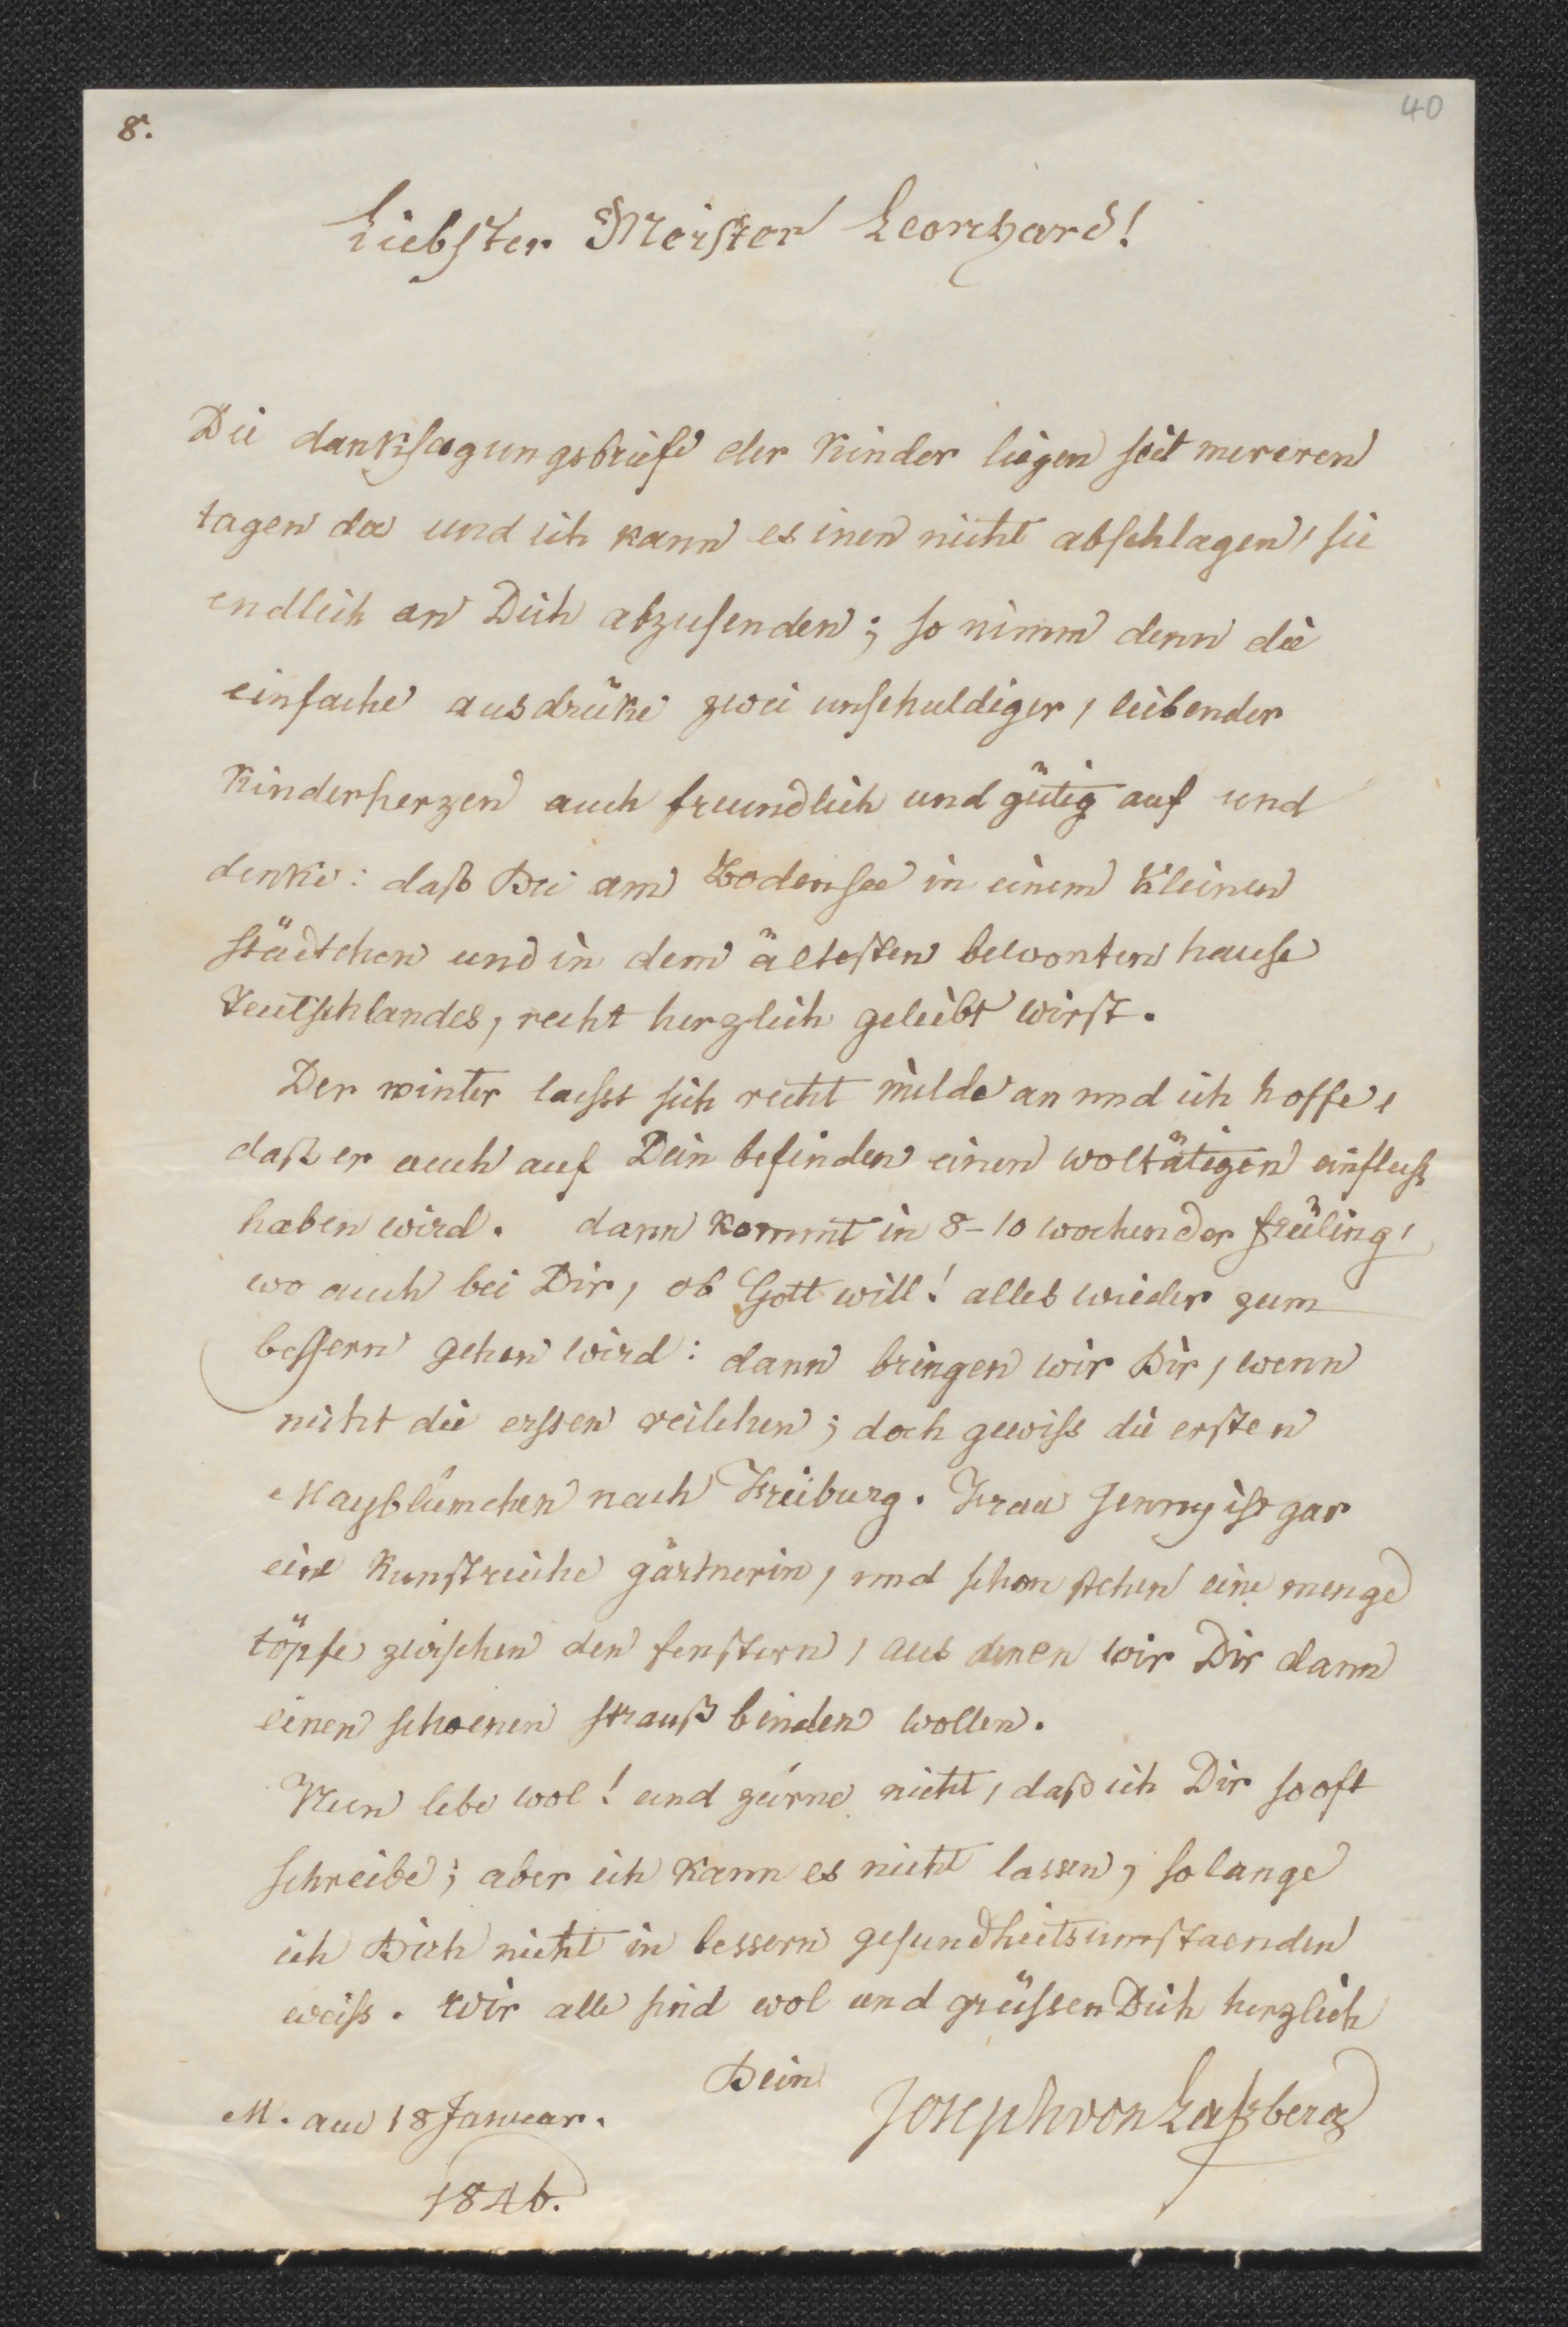 8.
40
Liebster Meister Leonhard!
Die danksagungsbriefe der Kinder liegen seit mereren
tagen da und ich kann es inen nicht abschlagen, sie
endlich an Dich abzusenden; so nimm denn die
einfache ausdrüke zwei unschuldiger, liebender
Kinderherzen auch freundlich und gütig auf und
denke: daß Du am Bodensee in einem kleinen
städtchen und in dem ältesten bewonten hause
Teutschlandes, recht herzlich geliebt wirst.
Der winter laesst sich recht milde an und ich hoffe,
daß er auch auf Dein befinden einen woltätigen einfluß
haben wird. dann kommt in 8-10 wochen der früling,
wo auch bei Dir, ob Gott will! alles wieder zum
bessern gehen wird: dann bringen wir Dir, wenn
nicht die ersten veilchen; doch gewiss die ersten
Mayblümchen nach Freiburg. Frau Jenny ist gar
eine kunstreiche gärtnerin, und schon stehen eine menge
töpfe zwischen den fenstern, aus denen wir Dir dann
einen schoenen strauß binden wollen.
Nun lebe wol! und zürne nicht, daß ich Dir so oft
schreibe; aber ich kann es nicht lassen, so lange
ich Dich nicht in bessern gesundheitsumstaenden
weiss. wir alle sind wol und grüssen Dich herzlich
Dein
Joseph von Laßberg
M. am 18 Januar.
1846.